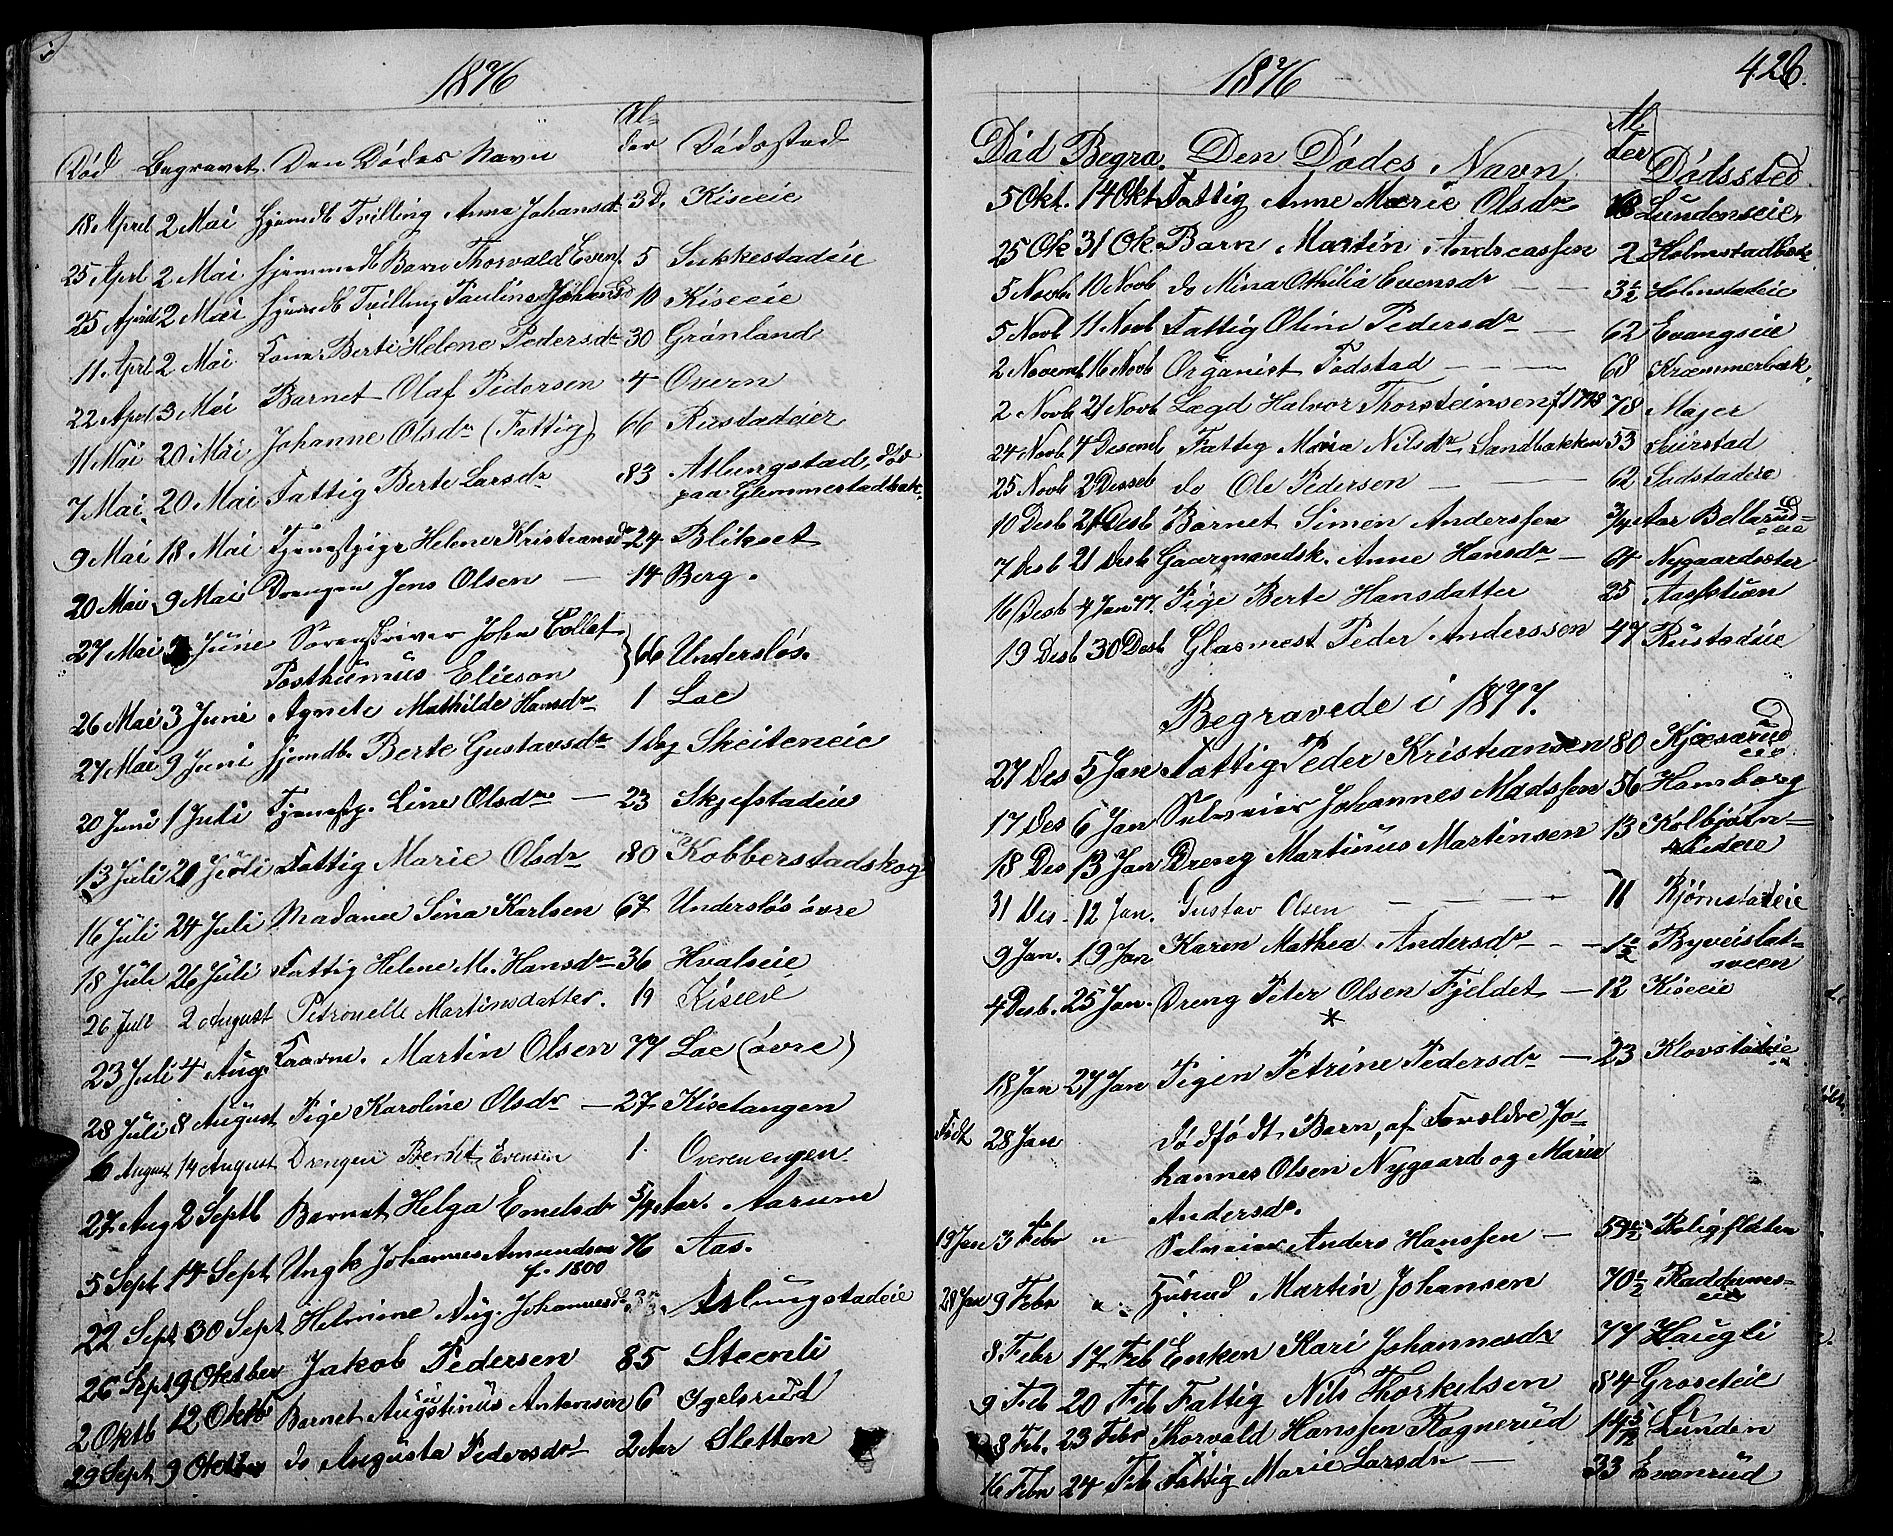 1876
Død Begravet. Den Dødes Navn Alder Dødsstad
18 April 2 Mai hjemdb Tvilling Anna Johansdr 3 D. Kiseeie
25 Aprl 2 Mai hjemmedb Barn Thorvald Evens. 5 Sukkestadeie
25 April 2 Mai hjemdb Tvilling Pauline Johansd 10 Kiseeie
11 Aprl 2 Mai Kone Berte Helene Pedersdr 30 Grönland
22 April 3 Mai Barnet Olaf Pedersen 4 Overn
11 Mai 20 Mai Johanne Olsdr (Fattig) 66 Rustadeier
7 Mai 20 Mai Fattig Berte Larsdr 83 Atlungstad, död
paa Glemmestadbak.
9 Mai 18 Mai Tjenestpige Helene Kristiansdr 24 Blikset
20 Mai 9 Mai Drengen Jens Olsen — 14 Berg.
27 Mai June Sorenskriver John Collet
Posthumus Elieson } 66 Undersløs.
26 Mai 3 Juni Agnete Mathilde Hansdr 1 Loe
27 Mai 9 Juni hjemdb. Berte Gustavsdr 1 Dag Skeiteneie
20 Juni 1 Juli Tjenestp. Line Olsdr — 23 Skjefstadeie
13 Juli 20 Juli Fattig Marie Olsdr 80 Kobberstadskog
16 Juli 24 Juli Madame Sina Karlsen 67 Undersløs övre
18 Juli 26 Juli Fattig Helene M. Hansdr 36 Hvalseie
26 Juli 2 August Petronelle Martinsdatter. 19 Kiseeie
23 Juli 4 Aug. Kaarm. Martin Olsen 77 Loe (övre)
28 Juli 8 August Pige Karoline Olsdr — 27 Kisetangen
6 August 14 August Drengen Berdt Evensen 1. Overenengen
27 Aug 2 Septb Barnet Helga Emelsdr 5/12 Aar. Aarum
5 Sept 14 Sept Ungk Johannes Amundsen 76 Aas.
f. 1800
22 Sept 30 Sept Helmine Aug. Johannesdr Atlungstadeie
26 Sept 9 Oktber Jakob Pedersen 85 Steenli
2 Oktb 12 Oktb Barnet Augustinus Antonsen 6 Ogelsrud
29 Sept 9 Oktbr do Augusta Pedersdr 2 Aar Sletten
1876
426.
Död Begra. Den Dödes Navn Alder Dödssted
5 Okt. 14 Okt Fattig Anne Marie Olsdr Lundenseie
25 Ok 31 Ok Barn Martin Andreassen 2 Holmstadbak
5 Novb. 10 Novb do Mina Othilia Evensdr — — 3½ Holmstadeie
5 Novb 11 Novb Fattig Oline Pedersdr — 62 Evangseie
2 Novemb 16 Novb Organist Fodstad — — — 68 Kræmmerbak.
2 Novb 21 Novb Lægd Halvor Thorsteinsen f. 1798 78 Majer
24 Novb 4 Desemb Fattig Maria Nilsdr Sandbakken 53 Surstad
25 Novb 2 Desseb do Ole Pedersen — — 62 Sadstadeie
10 Desb 21 Desb Barnet Simen Anderssen 3/4 Aar Bellerud
eie
7 Desb 21 Desb Gaarmandsk. Anne Hansdr — 64 Nygaardseter
16 Desb 4 Jan 77. Pige Berte Hansdatter 25 Aasstuen
19 Desb 30 Desb Glasmest Peder Anderssen 47 Rustadeie
Begravede i 1877.
27 Des 5 Jan Fattig Peder Kristiansen 80 Kjæserud
eie
17 Des 6 Jan Selveier Johannes Madssen 56 Hamborg
18 Des 13 Jan Dreng Martinus Martinsen 13 Kolbjørn=
sløeie
31 Des. 12 Jan. Gustav Olsen — — — 71 Bjørnstadeie
9 Jan. 19 Jan Karen Mathea Andersdr - - 1½ Byveislat=
sveen
4 Desb. 25 Jan. Dreng Peter Olsen Fjeldet — 12 Kiseeie
*
18 Jan 27 Jan Pigen Petrine Pedersdr — 23 Klovstadeie
Født 28 Jan dødfødt Barn, af Forældre Jo=
hannes Olsen Nygaard og Maria
Andersdr.
19 Jan 3 Febr " Selveier Anders Hanssen — 59½ Roligfløten
28 Jan 9 Febr " Husmd Martin Johansen 70½ Raddumes=
eie
8 Febr 17 Feb Enken Kari Johannesdr 77 Haugli
9 Feb 20 Feb Fattig Nils Thorkelsen 84 Groseteie
8 Feb. 23 Febr Thorvald Hanssen Ragnerud 14 5/12 Lunden
16 Febr 24 Feb Fattig Marie Larsdr — 33 Evenrud